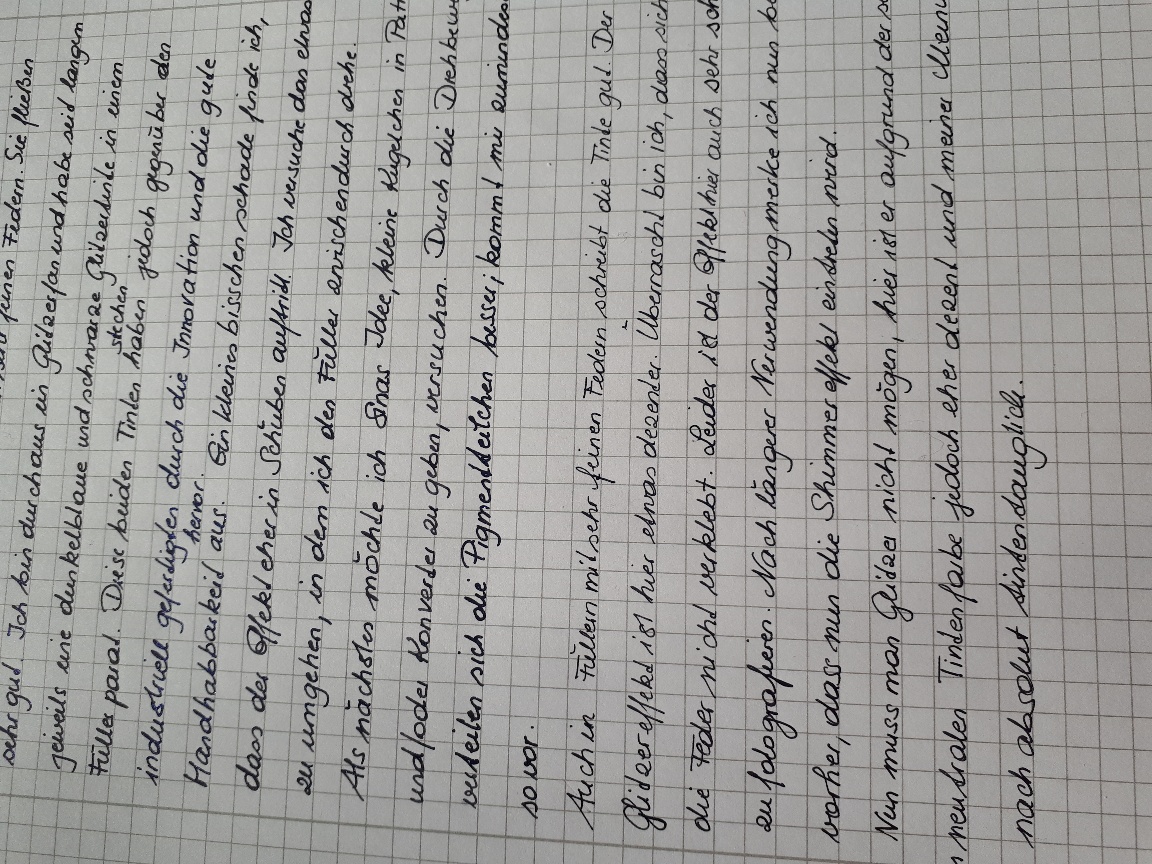 feinen Federn. Sie fließen
sehr gut. Ich bin durchaus ein Glitzerfan und habe seit langem
jeweils eine dunkelblaue und schwarze Glitzertinte in einem
Füller parat. Diese beiden Tinten stechen haben jedoch gegenüber den
industriell gefertigten durch die Innovation und die gute
Handhabbarkeit hervor. aus. Ein kleines bisschen schade finde ich,
dass der Effekt eher in Schüben auftritt. Ich versuche das etwas
zu umgehen, in dem ich den Füller zwischendurch drehe.
Als nächstes möchte ich Sinas Idee, kleine Kügelchen in Pat
und/oder Konverter zu geben, versuchen. Durch die Drehbewe
verteilen sich die Pigmentteilchen besser, kommt mir zumindest
so vor.
Auch in Füllern mit sehr feinen Federn schreibt die Tinte gut. Der
Glitzereffekt ist hier etwas dezenter. Überrascht bin ich, dass sich
die Feder nicht verklebt. Leider ist der Effekt hier auch sehr sch
zu fotografieren. Nach längerer Verwendung merke ich nun be
vorher, dass nun die Shimmereffekt eintreten wird.
Nun muss man Glitzer nicht mögen, hier ist er aufgrund der se
neutralen Tintenfarbe jedoch eher dezent und meiner Meinu
nach absolut tintentauglich.